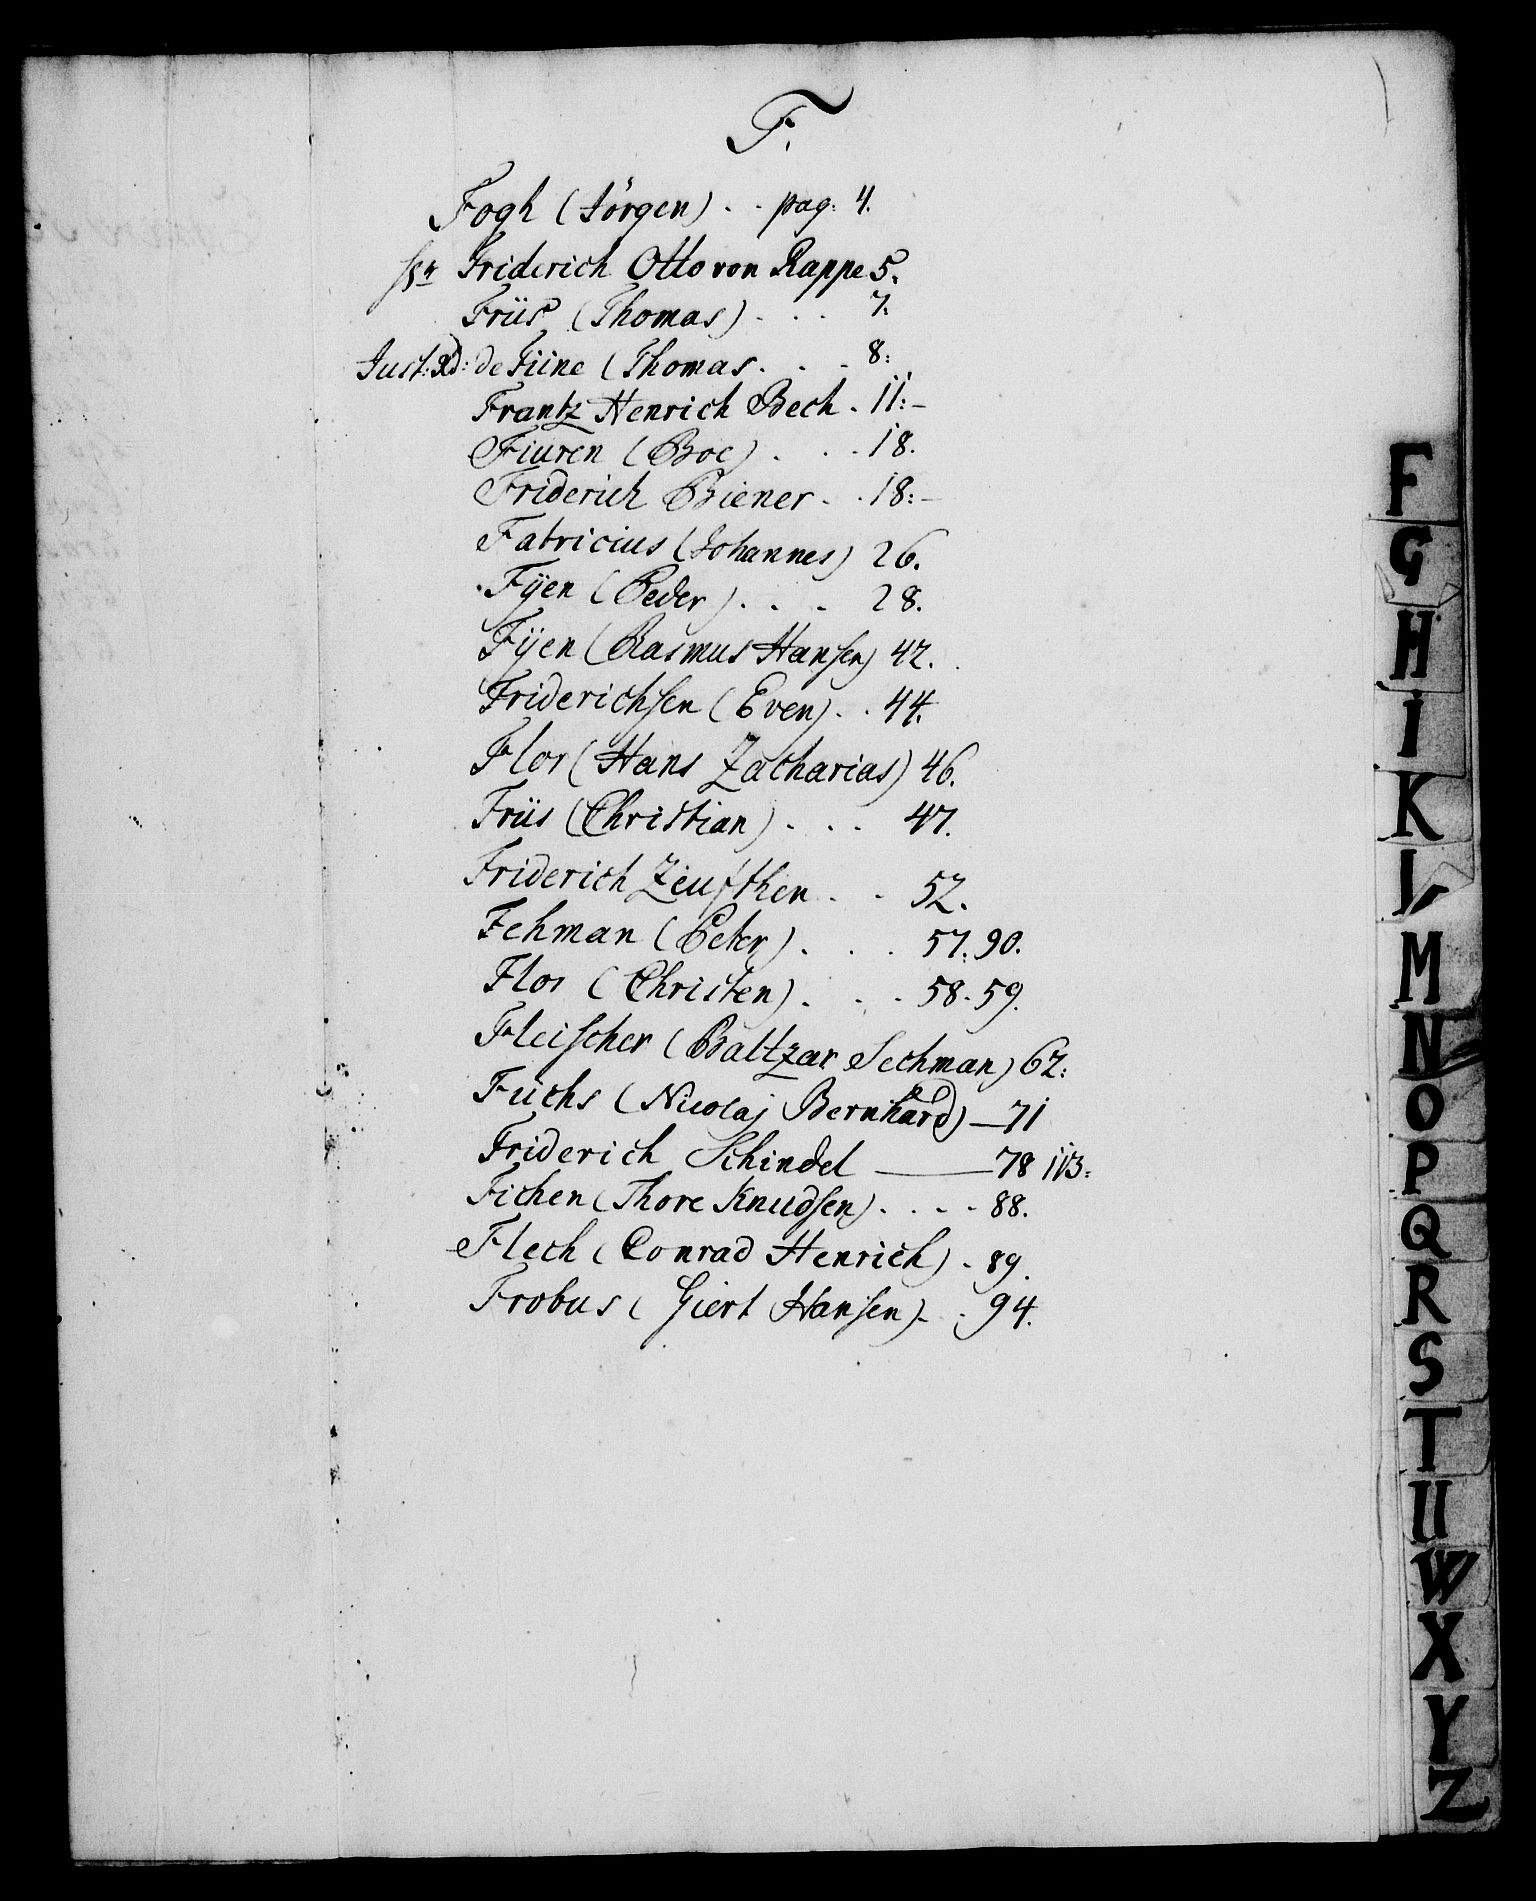 F.
Fogh (Jörgen) . . pag: 4.
Hr Friderich Otto von Rappe 5.
Friis (Thomas) . . . 7.
Just: Rd: de Fiine (Thomas . . . 8:
Frantz Henrich Bech . 11:-
Fiuren (Boe) . . . 18.
Friderich Biener . . 18:-
Fabricius (Johannes) 26.
Fÿen (Peder) . . . 28.
Fÿen (Rasmus Hansen) 42.
Friderichsen (Even) . . 44.
Flor (Hans Zacharias) 46.
Friis (Christian) . . . 47.
Friderich Zeufthen . . 52.
Fehman (Peter) . . . 57. 90.
Flor (Christen) . . . 58. 59.
Fleischer (Baltzar Sechman) 62:
Fuchs (Nicolaj Bernhard) — 71
Friderich Schindel — 78 113:
Fichen (Thore Knudsen) . . . . 88.
Flech (Conrad Henrich) . 89.
Frobus (Giert Hansen) . . 94.
F
G
H
I
K
L
M
N
O
P
Q
R
S
T
U
W
X
Y
Z